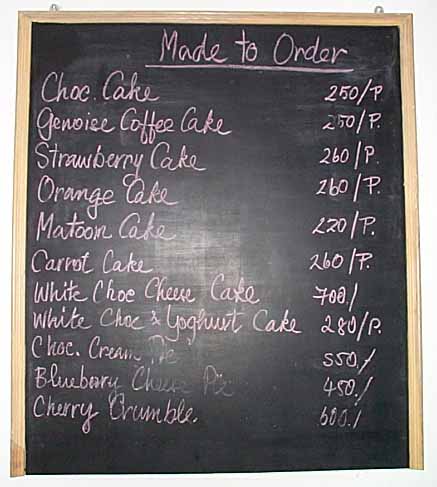 Made to Order
Choc. Cake 250/P.
Genoise Coffee Cake 250/P.
Strawberry Cake 260/P.
Orange Cake 260/P.
Matoom Cake 220/P.
Carrot Cake 260/P.
White Choc Cheese Cake 700./
White Choc & Yoghurt Cake 280/P.
Choc. Cream Pie 550./
Blueberry Cheese Pie 450./
Cherry Crumble. 600./